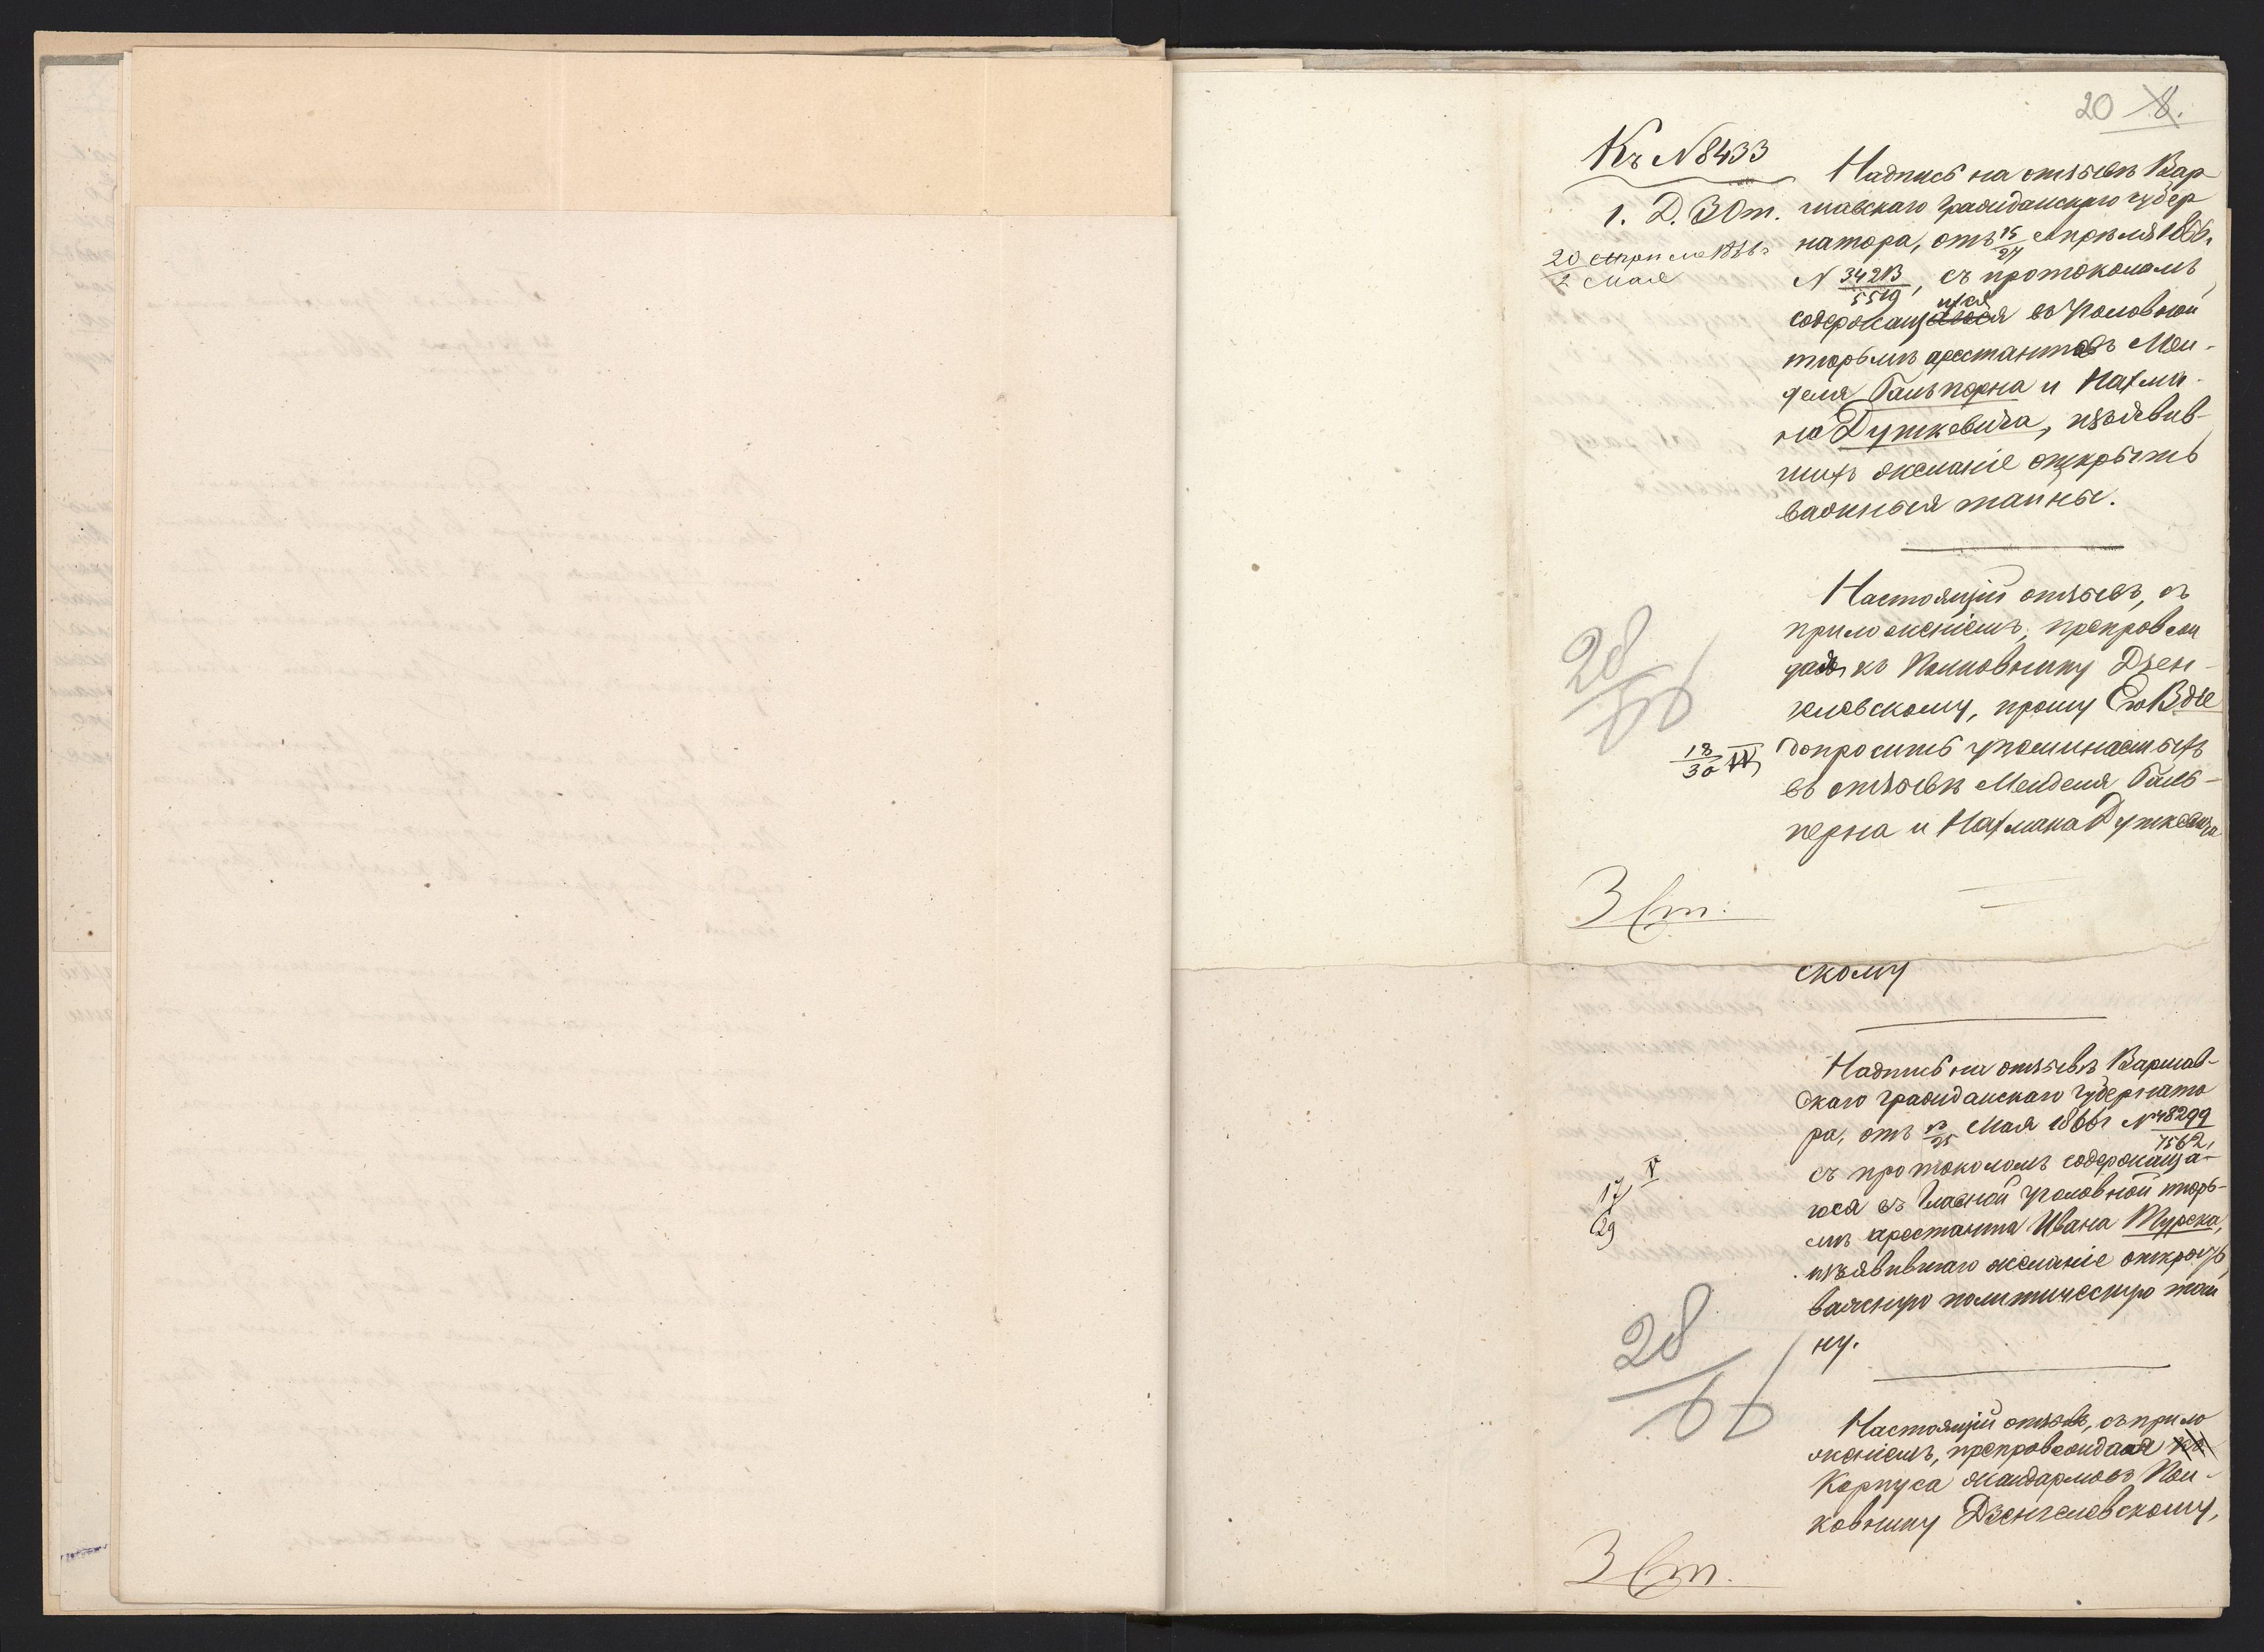 20 8.
Къ №8433
1. Д. 3 От.
20 Апреля 1866 г
2 Мая
Надпись на отзывѣ Вар
шавскаго Гражданскаго Губер
натора, отъ 15/27 Апрѣля 1866.
N 34213/5519, съ протоколомъ
содержащихся въ Уголовной
тюрьмѣ арестантовъ Мен-
деля Гальперна и Нахма-
на Дуткевича, изъявив-
шихъ желаніе открыть
важныя тайны.
Настоящій отзывъ, съ
приложеніемъ, препровож
дая къ Полковнику Дзен-
желевскому, прошу Его Вдіе
допросить упоминаемыхъ
въ отзывѣ Менделя Галь-
перна и Нахмана Дуткевича
28/66
18/30 IV
3 Ст:
скому
Надпись на отзывѣ Варшав-
скаго Гражданскаго Губернато
ра, отъ 13/25 Мая 1866 г №48299/7562,
съ протоколомъ содержаща-
гося въ Главной Уголовной тюрь-
мѣ арестанта Ивана Турска,
изъявившаго желаніе открыть
важную политическую тай
ну.
17/29 V
28/66
Настоящій отзывъ, съ прило
женіемъ, препровождая
Корпуса жандармовъ Пол-
ковнику Дзенгелевскому,
3 Ст.